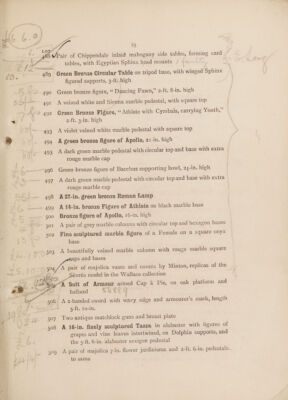 25
488 Pair of Chippendale inlaid mahogany side tables, forming card
tables, with Egyptian Sphinx head mounts
489 Green Bronze Circular Table on tripod base, with winged Sphinx
figured supports, 3-ft. high
490 Green bronze figure, "Dancing Fawn," 2-ft. 8-in. high
491 A veined white and Sienna marble pedestal, with square top
492 Green Bronze Figure, "Athlete with Cymbals, carrying Youth,"
2-ft. 3-in. high
493 A violet veined white marble pedestal with square top
494 A green bronze figure of Apollo, 21-in. high
495 A dark green marble pedestal with circular top and base with extra
rouge marble cap
496 Green bronze figure of Bacchus supporting bowl, 24-in. high
497 A dark green marble pedestal with circular top and base with extra
rouge marble cap
498 A 27-in. green bronze Roman Lamp
499 A 14-in. bronze Figure of Athlete on black marble base
500 Bronze figure of Apollo, 16-in. high
501 A pair of grey marble columns with circular top and hexagon bases
502 Fine sculptured marble figure of a Female on a square onyx
base
503 A beautifully veined marble column with rouge marble square
caps and bases
504 A pair of majolica vases and covers by Minton, replicas of the
Sèvres model in the Wallace collection
505 A Suit of Armour armed Cap à Pie, on oak platform and
halberd
506 A 2-handed sword with wavy edge and armourer's mark, length
5-ft. 10-in.
507 Two antique matchlock guns and breast plate
508 A 16-in. finely sculptured Tazza in alabaster with figures of
grapes and vine leaves intertwined, on Dolphin supports, and
the 3-ft. 6-in. alabaster octagon pedestal
509 A pair of majolica 7-in. flower jardinieres and 2-ft. 6-in. pedestals
to same